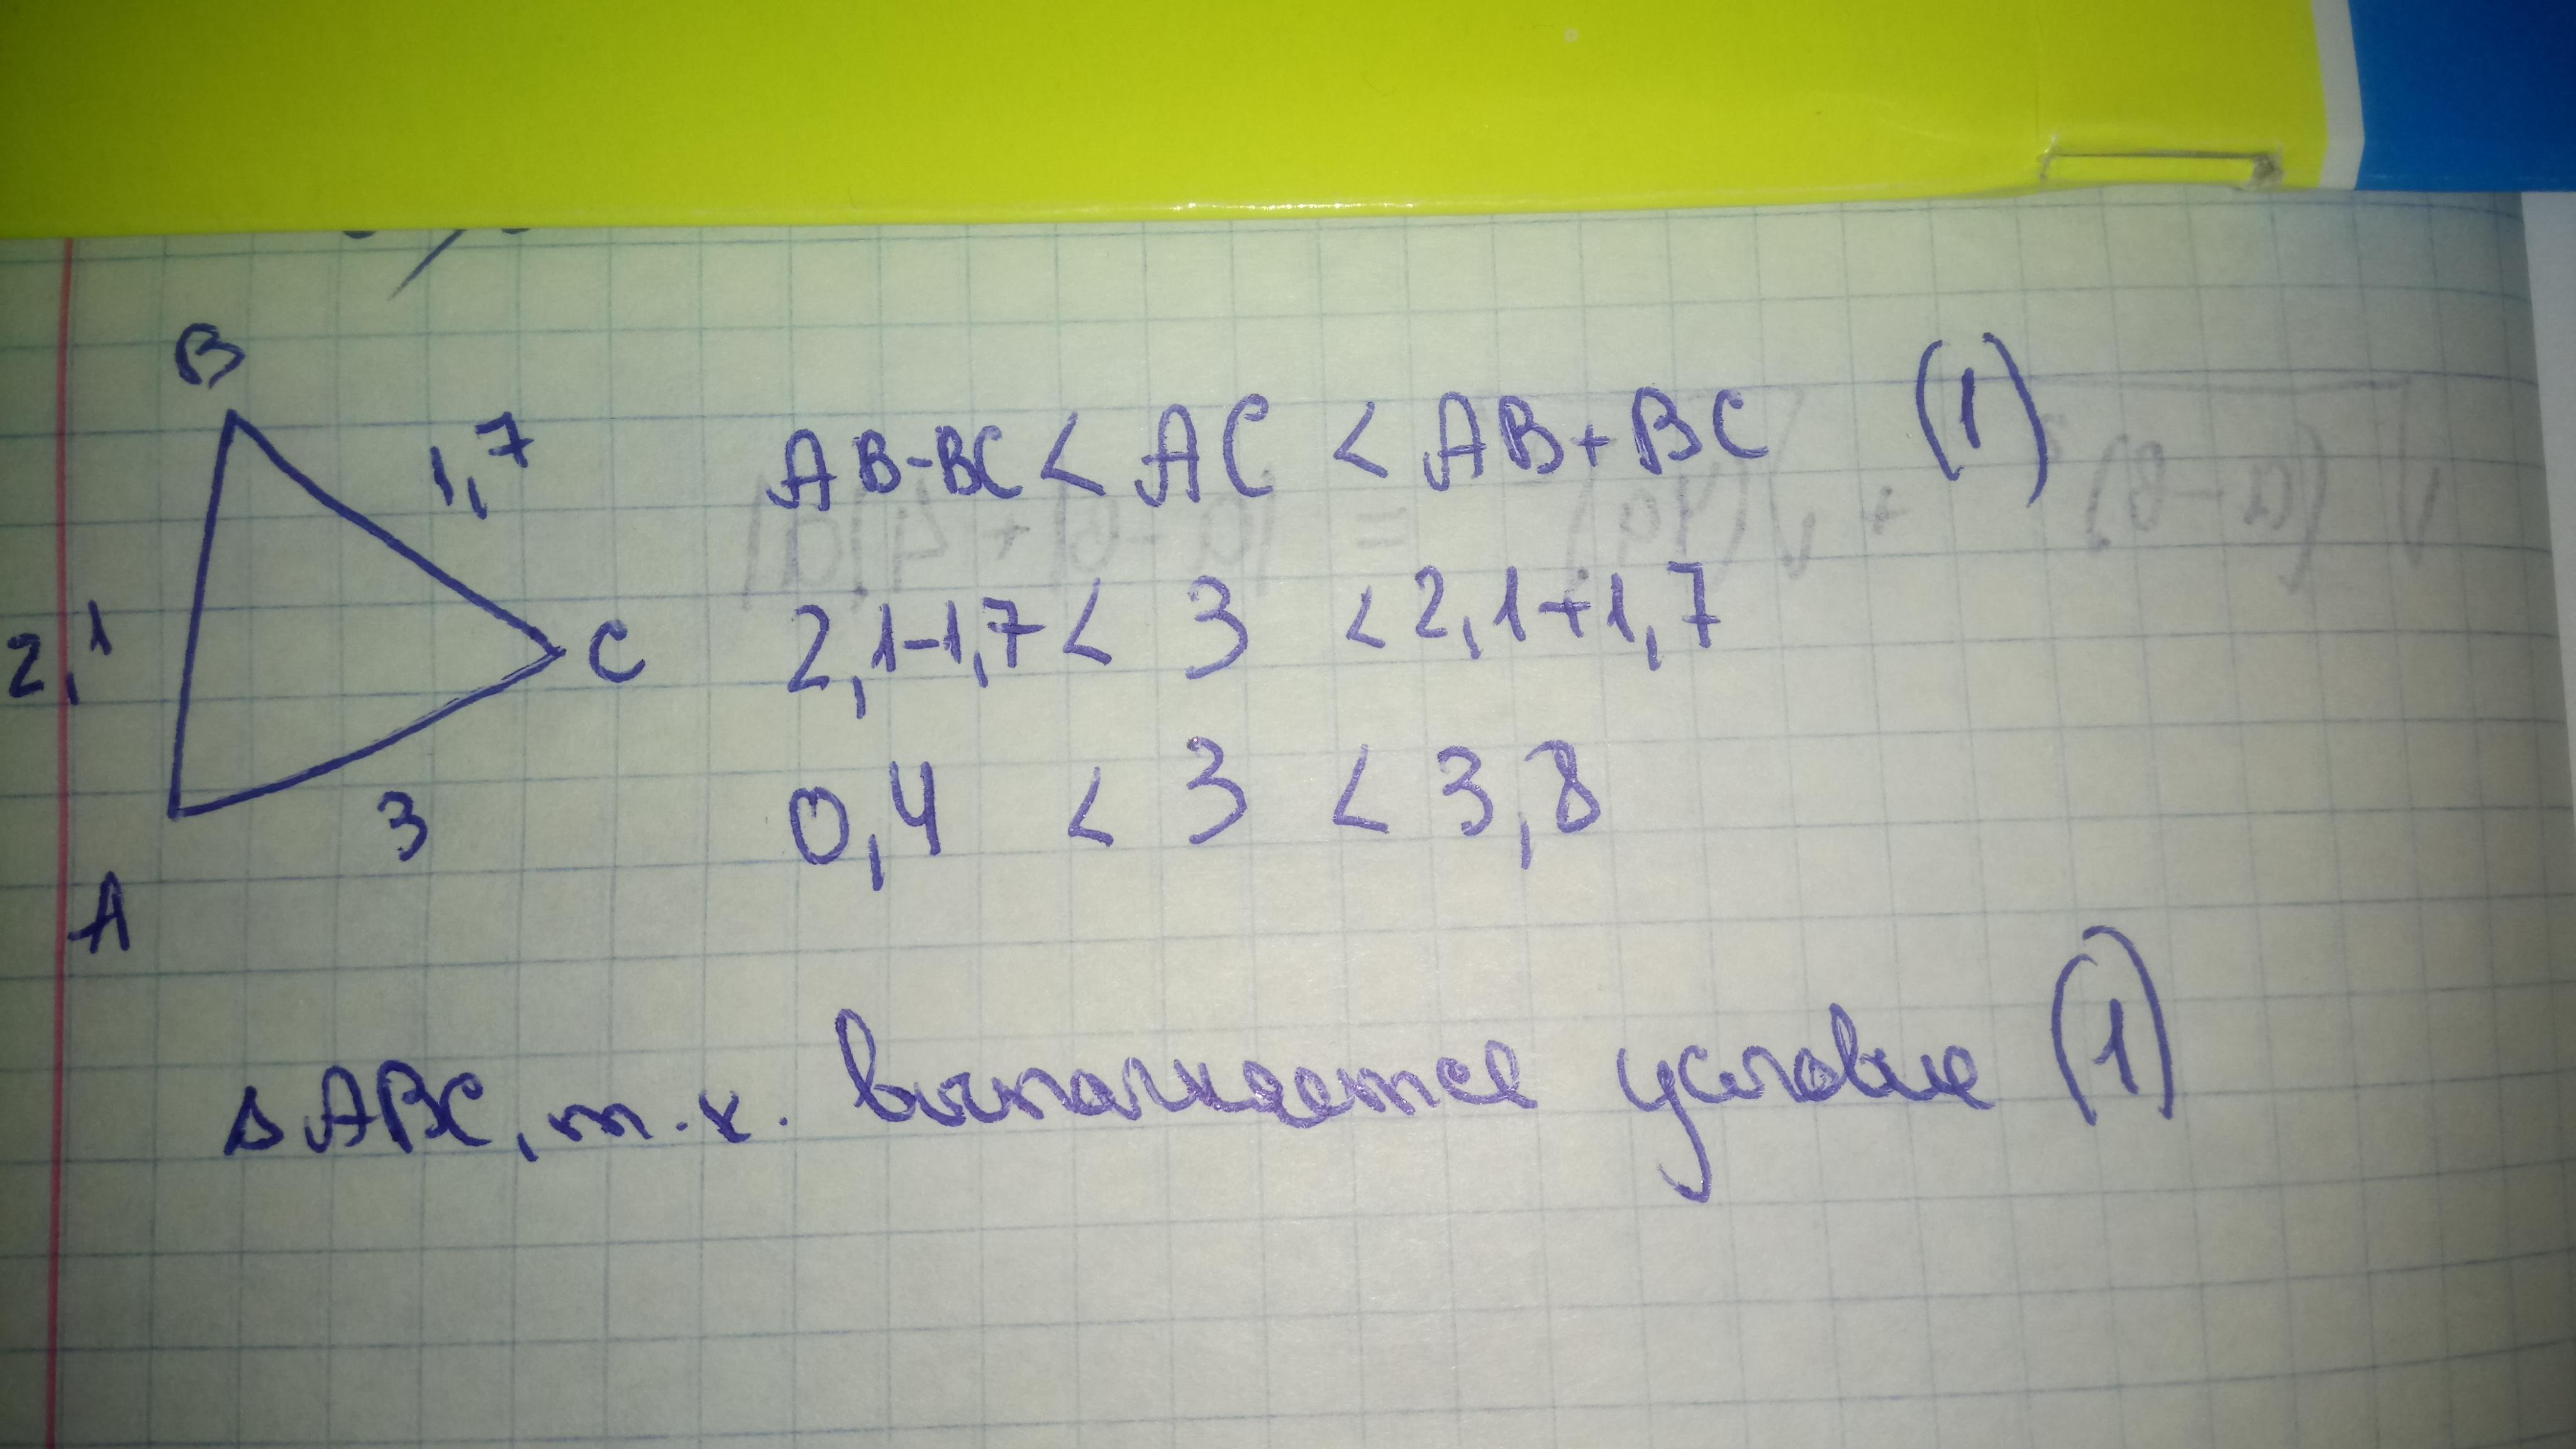 B
1,7
2,1
C
3
A
AB-BC < AC < AB+BC (1)
2,1-1,7 < 3 < 2,1+1,7
0,4 < 3 < 3,8
△ABC, т.к. выполняется условие (1)